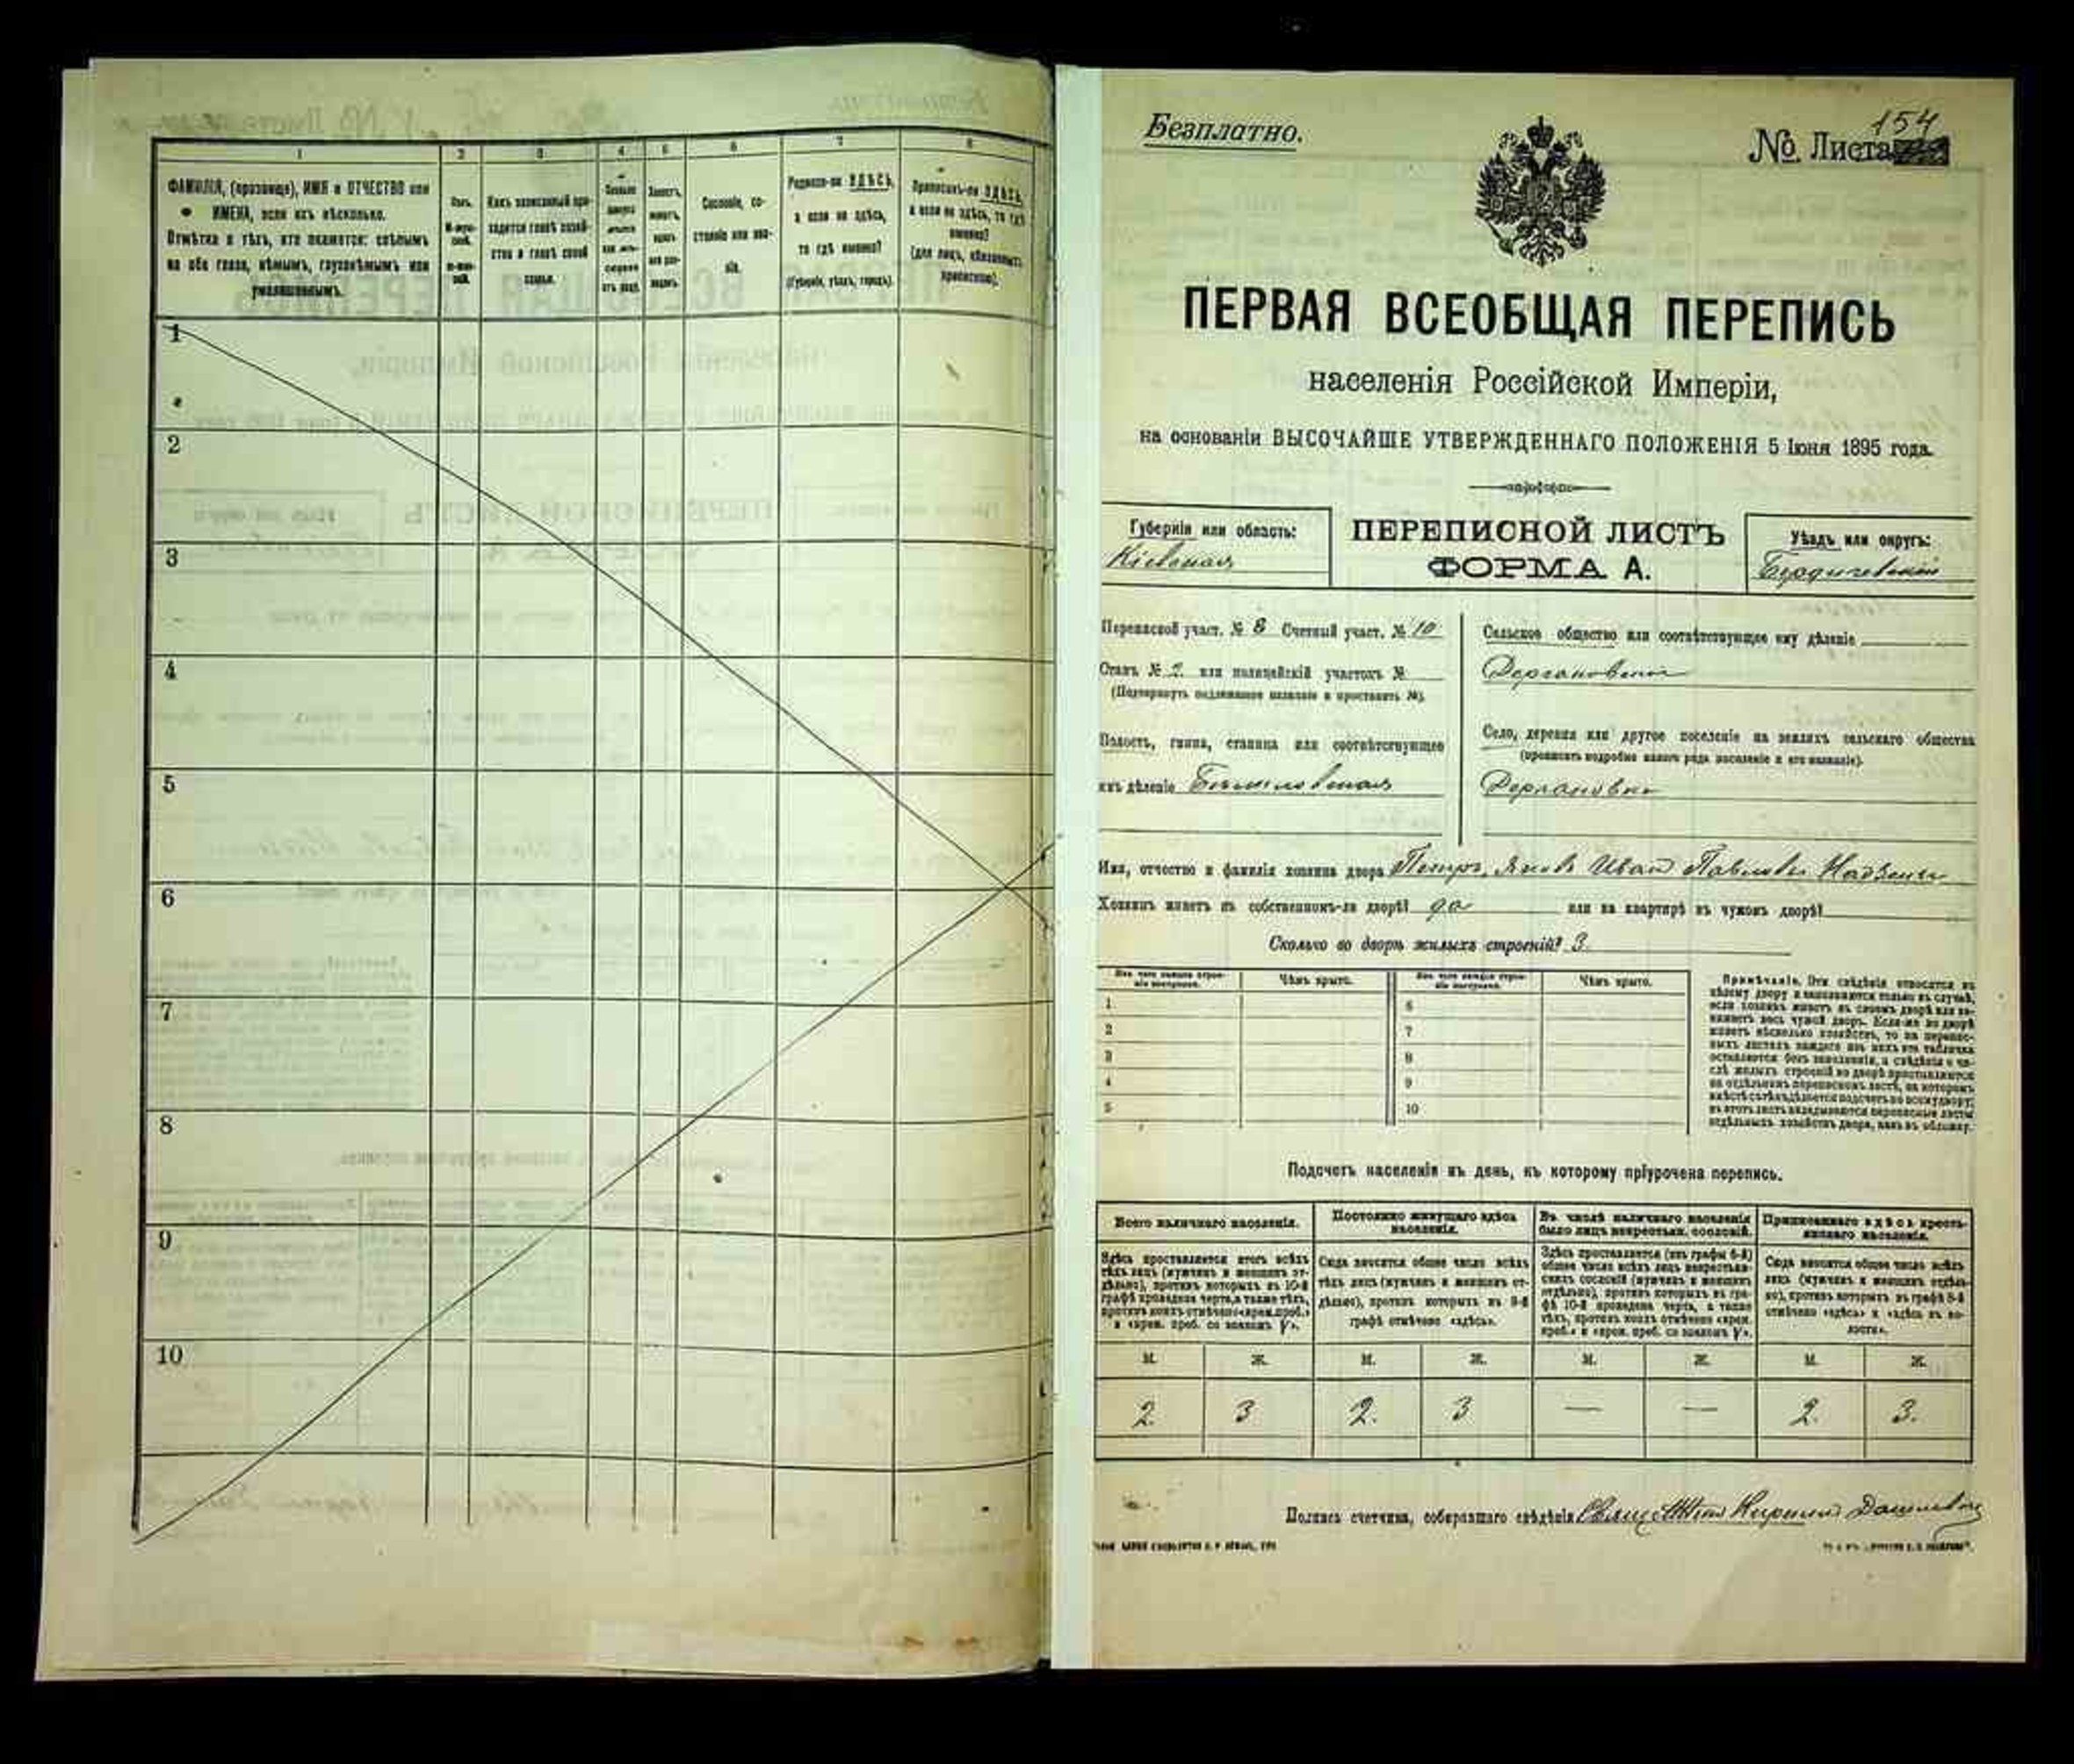 1 2 3 4 5 6 7 8
ФАМИЛІЯ, (прозвище), ИМЯ и ОТЧЕСТВО или
ИМЕНА, если ихъ нѣсколько.
Отмѣтка о тѣхъ, кто окажется: слѣпымъ
на оба глаза, нѣмымъ, глухонѣмымъ или
умалишеннымъ.
Полъ.
Какъ записанный при-
ходится главѣ хозяй-
ства и главѣ своей
семьи.
Сословіе, со-
стояніе или зва-
ніе.
Родился-ли ЗДѢСЬ,
а если не здѣсь,
то гдѣ именно?
(Губернія, уѣздъ, городъ).
Приписанъ-ли ЗДѢСЬ,
а если не здѣсь, то гдѣ
именно?
(для лицъ, обязанныхъ
припискою).
1
2
3
4
5
6
7
8
9
10
Безплатно.
№ Листа 154
ПЕРВАЯ ВСЕОБЩАЯ ПЕРЕПИСЬ
населенія Россійской Имперіи,
на основаніи ВЫСОЧАЙШЕ УТВЕРЖДЕННАГО ПОЛОЖЕНІЯ 5 Іюня 1895 года.
Губернія или область:
Кіевская
ПЕРЕПИСНОЙ ЛИСТЪ
ФОРМА А.
Уѣздъ или округъ:
Бердичевскій
Переписной участ. № 8 Счетный участ. № 10
Станъ № 2 или полицейскій участокъ №
(Подчеркнуть надлежащее названіе и проставить №).
Волость, гмина, станица или соотвѣтствующее
имъ дѣленіе
Сельское общество или соотвѣтствующее ему дѣленіе
Село, деревня или другое поселеніе на земляхъ сельскаго общества
(прописать подробно какого рода поселеніе и его названіе).
Имя, отчество и фамилія хозяина двора Петръ, Яковъ Иванъ Павловы
Хозяинъ живетъ въ собственномъ-ли дворѣ? да или на квартирѣ въ чужомъ дворѣ?
Сколько во дворѣ жилыхъ строеній? 3.
Изъ чего каждое строе-
ніе построено.
Чѣмъ крыто.
Изъ чего каждое строе-
ніе построено.
Чѣмъ крыто.
1 6
2 7
3 8
4 9
5 10
Примѣчаніе. Эти свѣдѣнія относятся къ
цѣлому двору и заполняются только въ случаѣ,
если хозяинъ живетъ въ своемъ дворѣ или за-
нимаетъ весь чужой дворъ. Если-же во дворѣ
живетъ нѣсколько хозяйствъ, то на перепис-
ныхъ листахъ каждаго изъ нихъ эта табличка
оставляется безъ заполненія, а свѣдѣнія о чи-
слѣ жилыхъ строеній во дворѣ проставляются
на отдѣльномъ переписномъ листѣ, на которомъ
вмѣстѣ съ тѣмъ дѣлается подсчетъ по всему двору;
въ этотъ листъ вкладываются переписные листы
отдѣльныхъ хозяйствъ двора, какъ въ обложку.
Подсчетъ населенія въ день, къ которому пріурочена перепись.
Всего наличнаго населенія.
Постоянно живущаго здѣсь
населенія.
Въ числѣ наличнаго населенія
было лицъ некрестьян. сословій.
Приписаннаго здѣсь кресть-
янскаго населенія.
Здѣсь проставляется итогъ всѣхъ
тѣхъ лицъ (мужчинъ и женщинъ от-
дѣльно), противъ которыхъ въ 10-й
графѣ проведена черта, а также тѣхъ,
противъ коихъ отмѣчено «врем. преб.»
и «врем. преб. со знакомъ V».
Сюда вносится общее число всѣхъ
тѣхъ лицъ (мужчинъ и женщинъ от-
дѣльно), противъ которыхъ въ 9-й
графѣ отмѣчено «здѣсь».
Здѣсь проставляется (изъ графы 6-й)
общее число всѣхъ лицъ некрестьян-
скихъ сословій (мужчинъ и женщинъ
отдѣльно), противъ которыхъ въ гра-
фѣ 10-й проведена черта, а также
тѣхъ, противъ коихъ отмѣчено «врем.
преб.» и «врем. преб. со знакомъ V».
Сюда вносится общее число всѣхъ
лицъ (мужчинъ и женщинъ отдѣль-
но), противъ которыхъ въ графѣ 8-й
отмѣчено «здѣсь» и «здѣсь въ во-
лости».
М. Ж. М. Ж. М. Ж. М. Ж.
2. 3 2. 3 — — 2. 3.
Подпись счетчика, собиравшаго свѣдѣнія